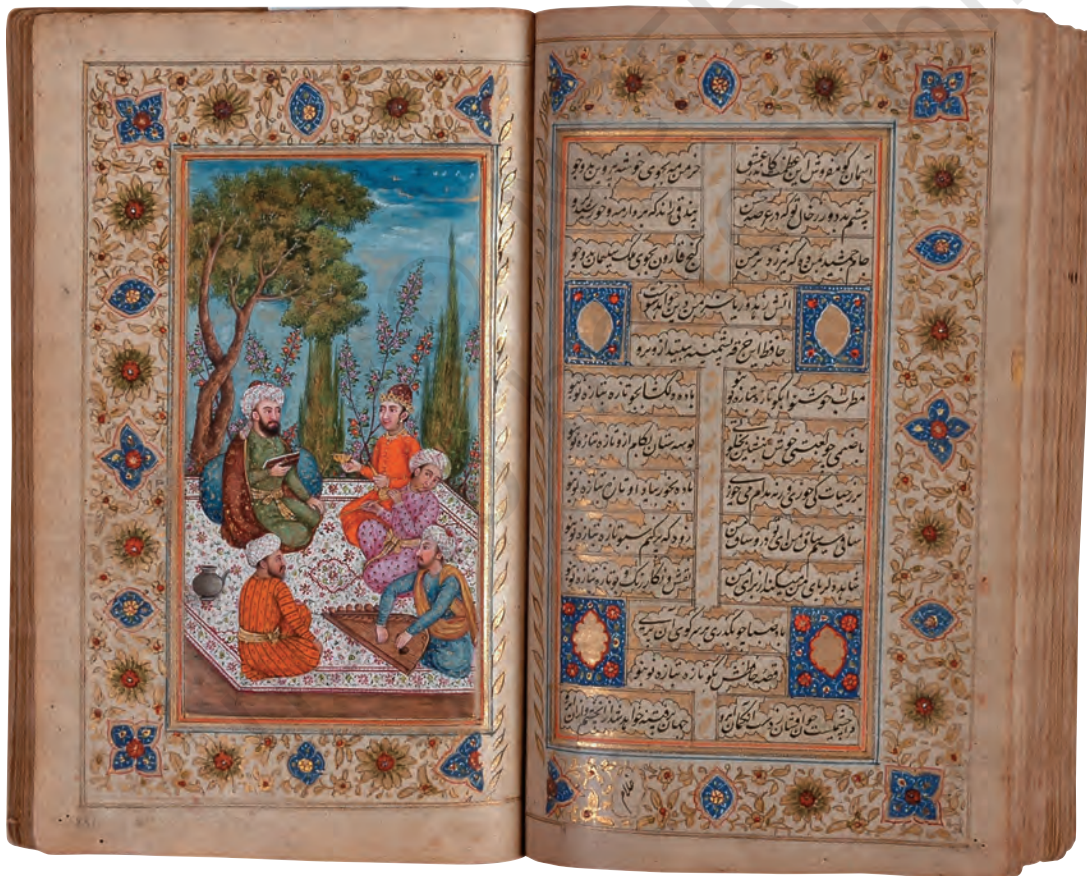 آسمان گو مفروش این عظمت کاندر عشق خرمن مه بجوی خوشه پروین بدو جو
چشم بد دور ز خال تو که در عرصه حسن بیدقی راند که برد از مه و خورشید گرو
جام جمشید بمن ده که نیرزد بر من گنج قارون بجوی ملک سلیمان بدو جو
آتش زهد و ریا خرمن دین خواهد سوخت
حافظ این خرقه پشمینه بینداز و برو
مطرب خوشنوا بگو تازه بتازه نو بنو باده دلگشا بجو تازه بتازه نو بنو
با صنمی چو لعبتی خوش بنشین بخلوتی بوسه ستان بکام ازو تازه بتازه نو بنو
بر ز حیات کی خوری گر نه مدام می خوری باده بخور بیاد او تازه بتازه نو بنو
ساقی سیم ساق من زود که پر کنم سبو تازه بتازه نو بنو
شاهد دلربای من میکند از برای من نقش و نگار و رنگ و بو تازه بتازه نو بنو
باد صبا چو بگذری بر سر کوی آن پری
قصه حافظش بگو تازه بتازه نو بنو
مرا چشمیست خون افشان ز دست آن کمان ابرو جهان پر فتنه خواهد شد از آن چشم و از آن ابرو
غلام